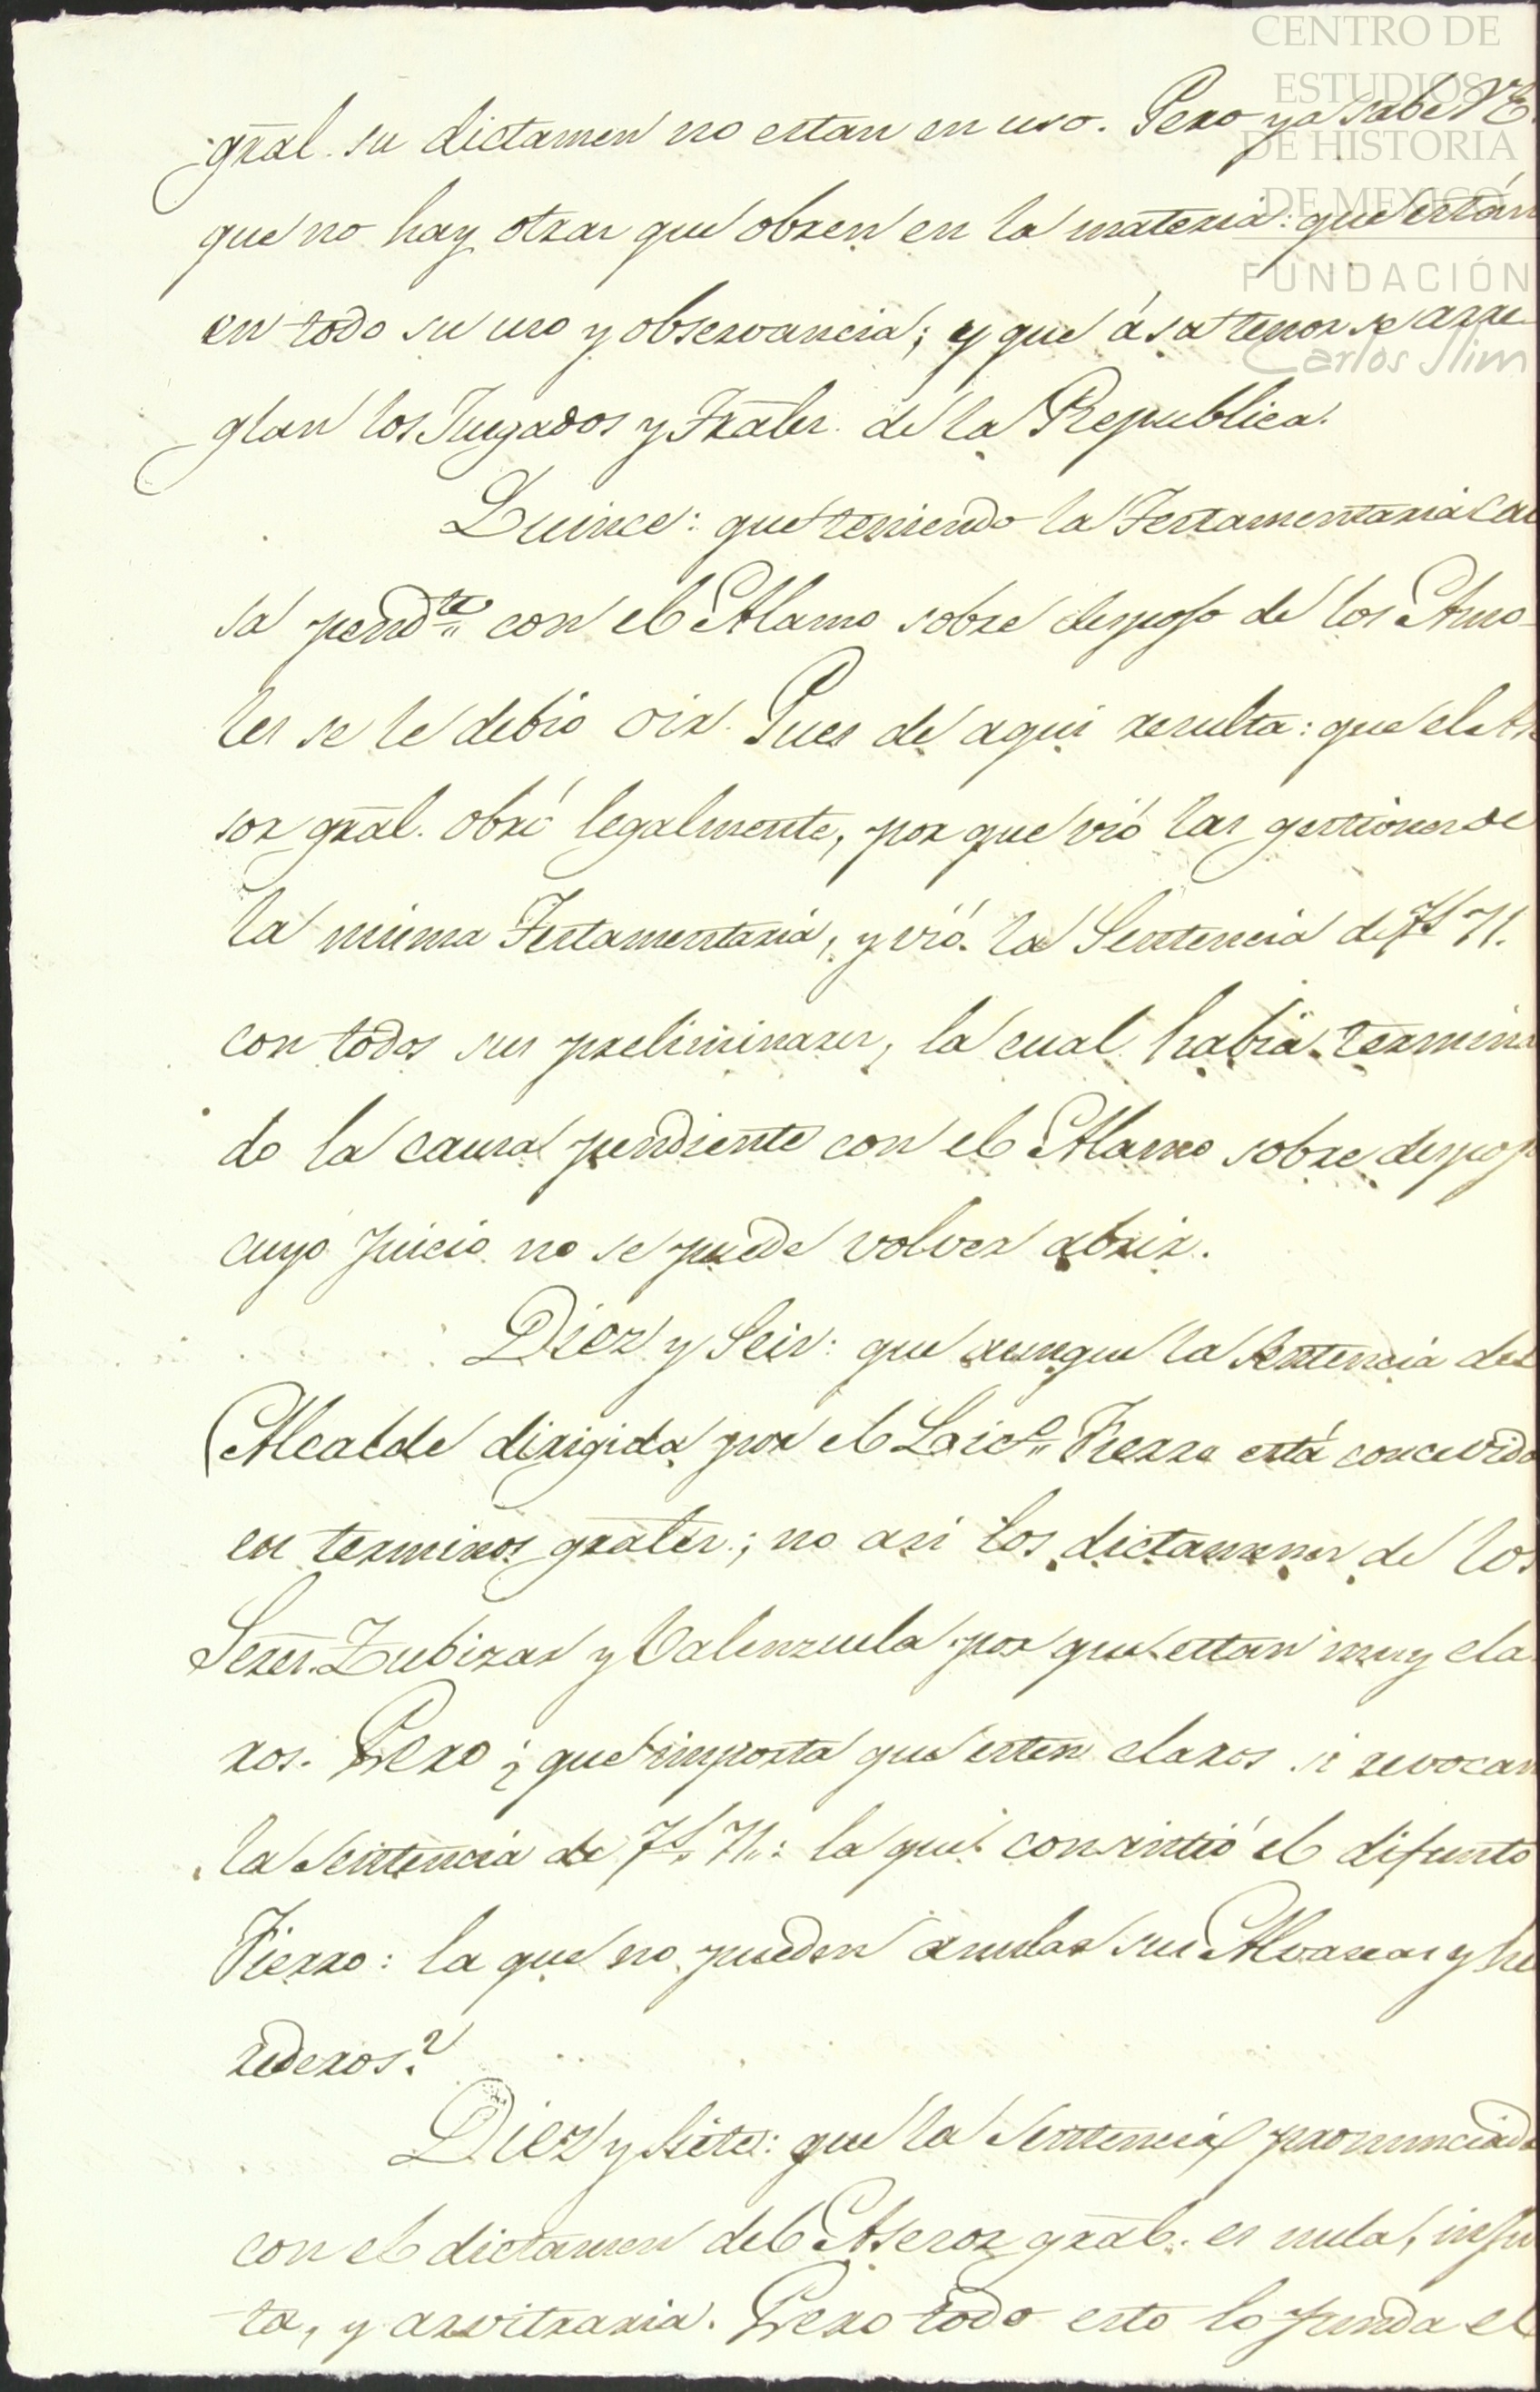 CENTRO DE
ESTUDIOS
DE HISTORIA
DE MEXICO
FUNDACIÓN
Carlos Slim
gral. su dictamen no estan en uso. Pero ya sabe V.E.
que no hay otras que obren en la materia: que están
en todo su uso y observancia; y que á su tenor se arre-
glan los Juzgados y Trales. de la Republica.
Quince: que teniendo la Testamentaria cau
sa pend.te con el Alamo sobre despojo de los Amo-
les se le debio oir. Pues de aqui resulta: que el Ase
sor gral. obró legalmente, por que vió las gestiones de
la misma Testamentaria, y vió la Sentencia de fs 71.
con todos sus preliminares, la cual habia termina
do la causa pendiente con el Alamo sobre despojo
cuyo Juicio no se puede volver abrir.
Diez y Seis: que aunque la Sentencia del
Alcalde dirigida por el Licdo. Fierro está concevida
en terminos grales.; no asi los dictamenes de los
Seres. Zubizar y Valenzuela por que estan muy cla
ros. Pero ¿que importa que esten claros si revocan
la Sentencia de fs. 71.: la que consintió el difunto
Fierro: la que no pueden anular sus Alvaceas y he
rederos?
Diez y Siete: que la Sentencia pronunciada
con el dictamen del Asesor gral. es nula, injus
ta, y arvitraria. Pero todo esto lo funda el